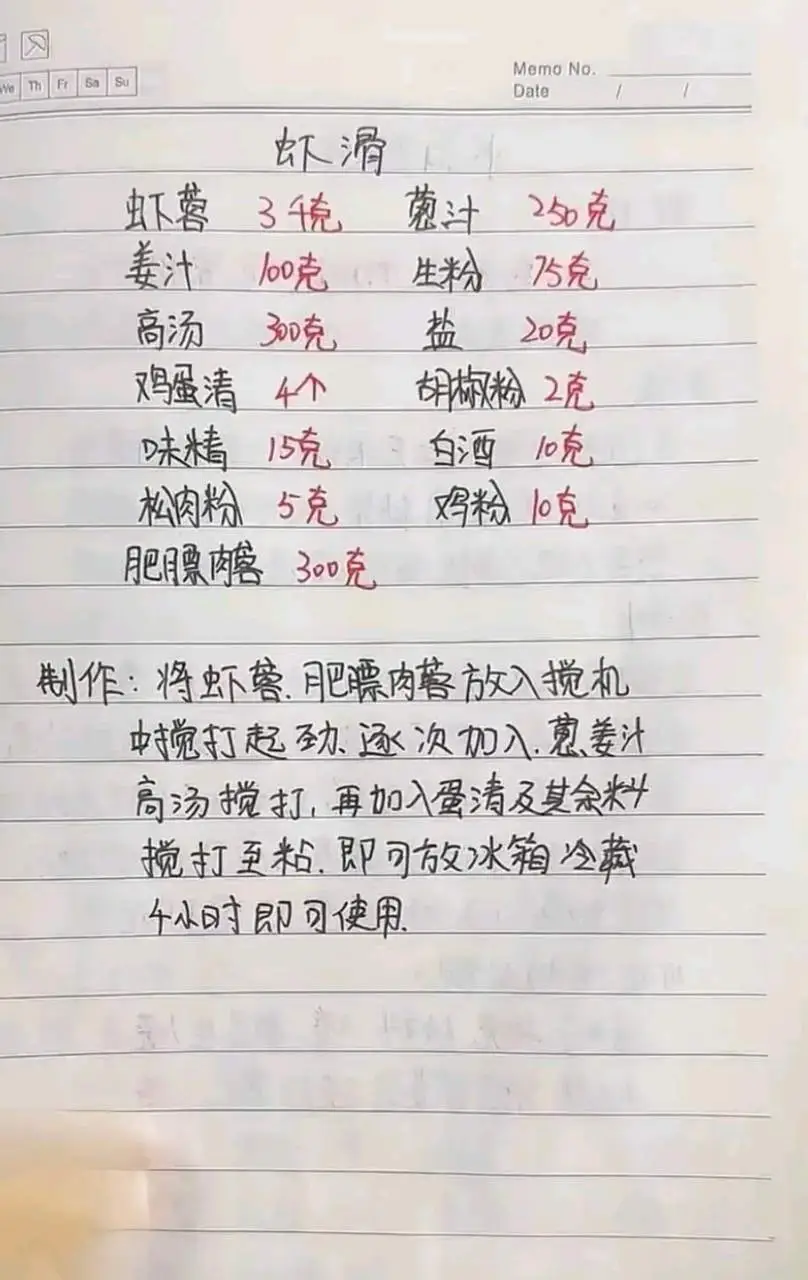 We Th Fr Sa Su
Memo No.
Date / /
虾滑
虾蓉 3千克 葱汁 250克
姜汁 100克 生粉 75克
高汤 300克 盐 20克
鸡蛋清 4个 胡椒粉 2克
味精 15克 白酒 10克
松肉粉 5克 鸡粉 10克
肥膘肉蓉 300克
制作：将虾蓉.肥膘肉蓉放入搅机
中搅打起劲、逐次加入.葱姜汁
高汤搅打,再加入蛋清及其余料
搅打至粘.即可放冰箱冷藏
4小时即可使用.